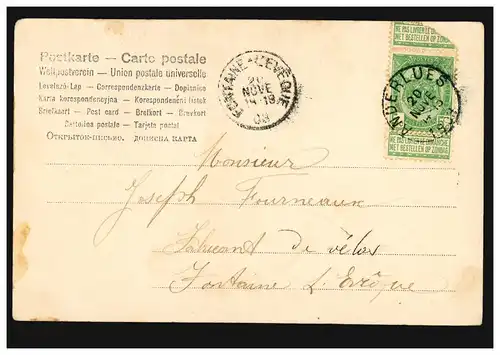 Postkarte — Carte postale
Weltpostverein — Union postale universelle
Levelező-Lap — Correspondenzkarte — Dopisnice
Karta korespondencyjna — Korespondenční lístek
Briefkaart — Post card — Brefkort — Brevkort
Cartolina postale — Tarjeta postal
Открытое письмо. дописна карта
FONTAINE-L'EVÊQUE
20
NOVE
03
ANDERLUES
20
NOVE
NE PAS LIVRER LE DIMANCHE
NIET BESTELLEN OP ZONDAG
NE PAS LIVRER LE DIMANCHE
NIET BESTELLEN OP ZONDAG
Monsieur
Joseph Fourneaux
Fabricant de vélos
Fontaine L'Evêque